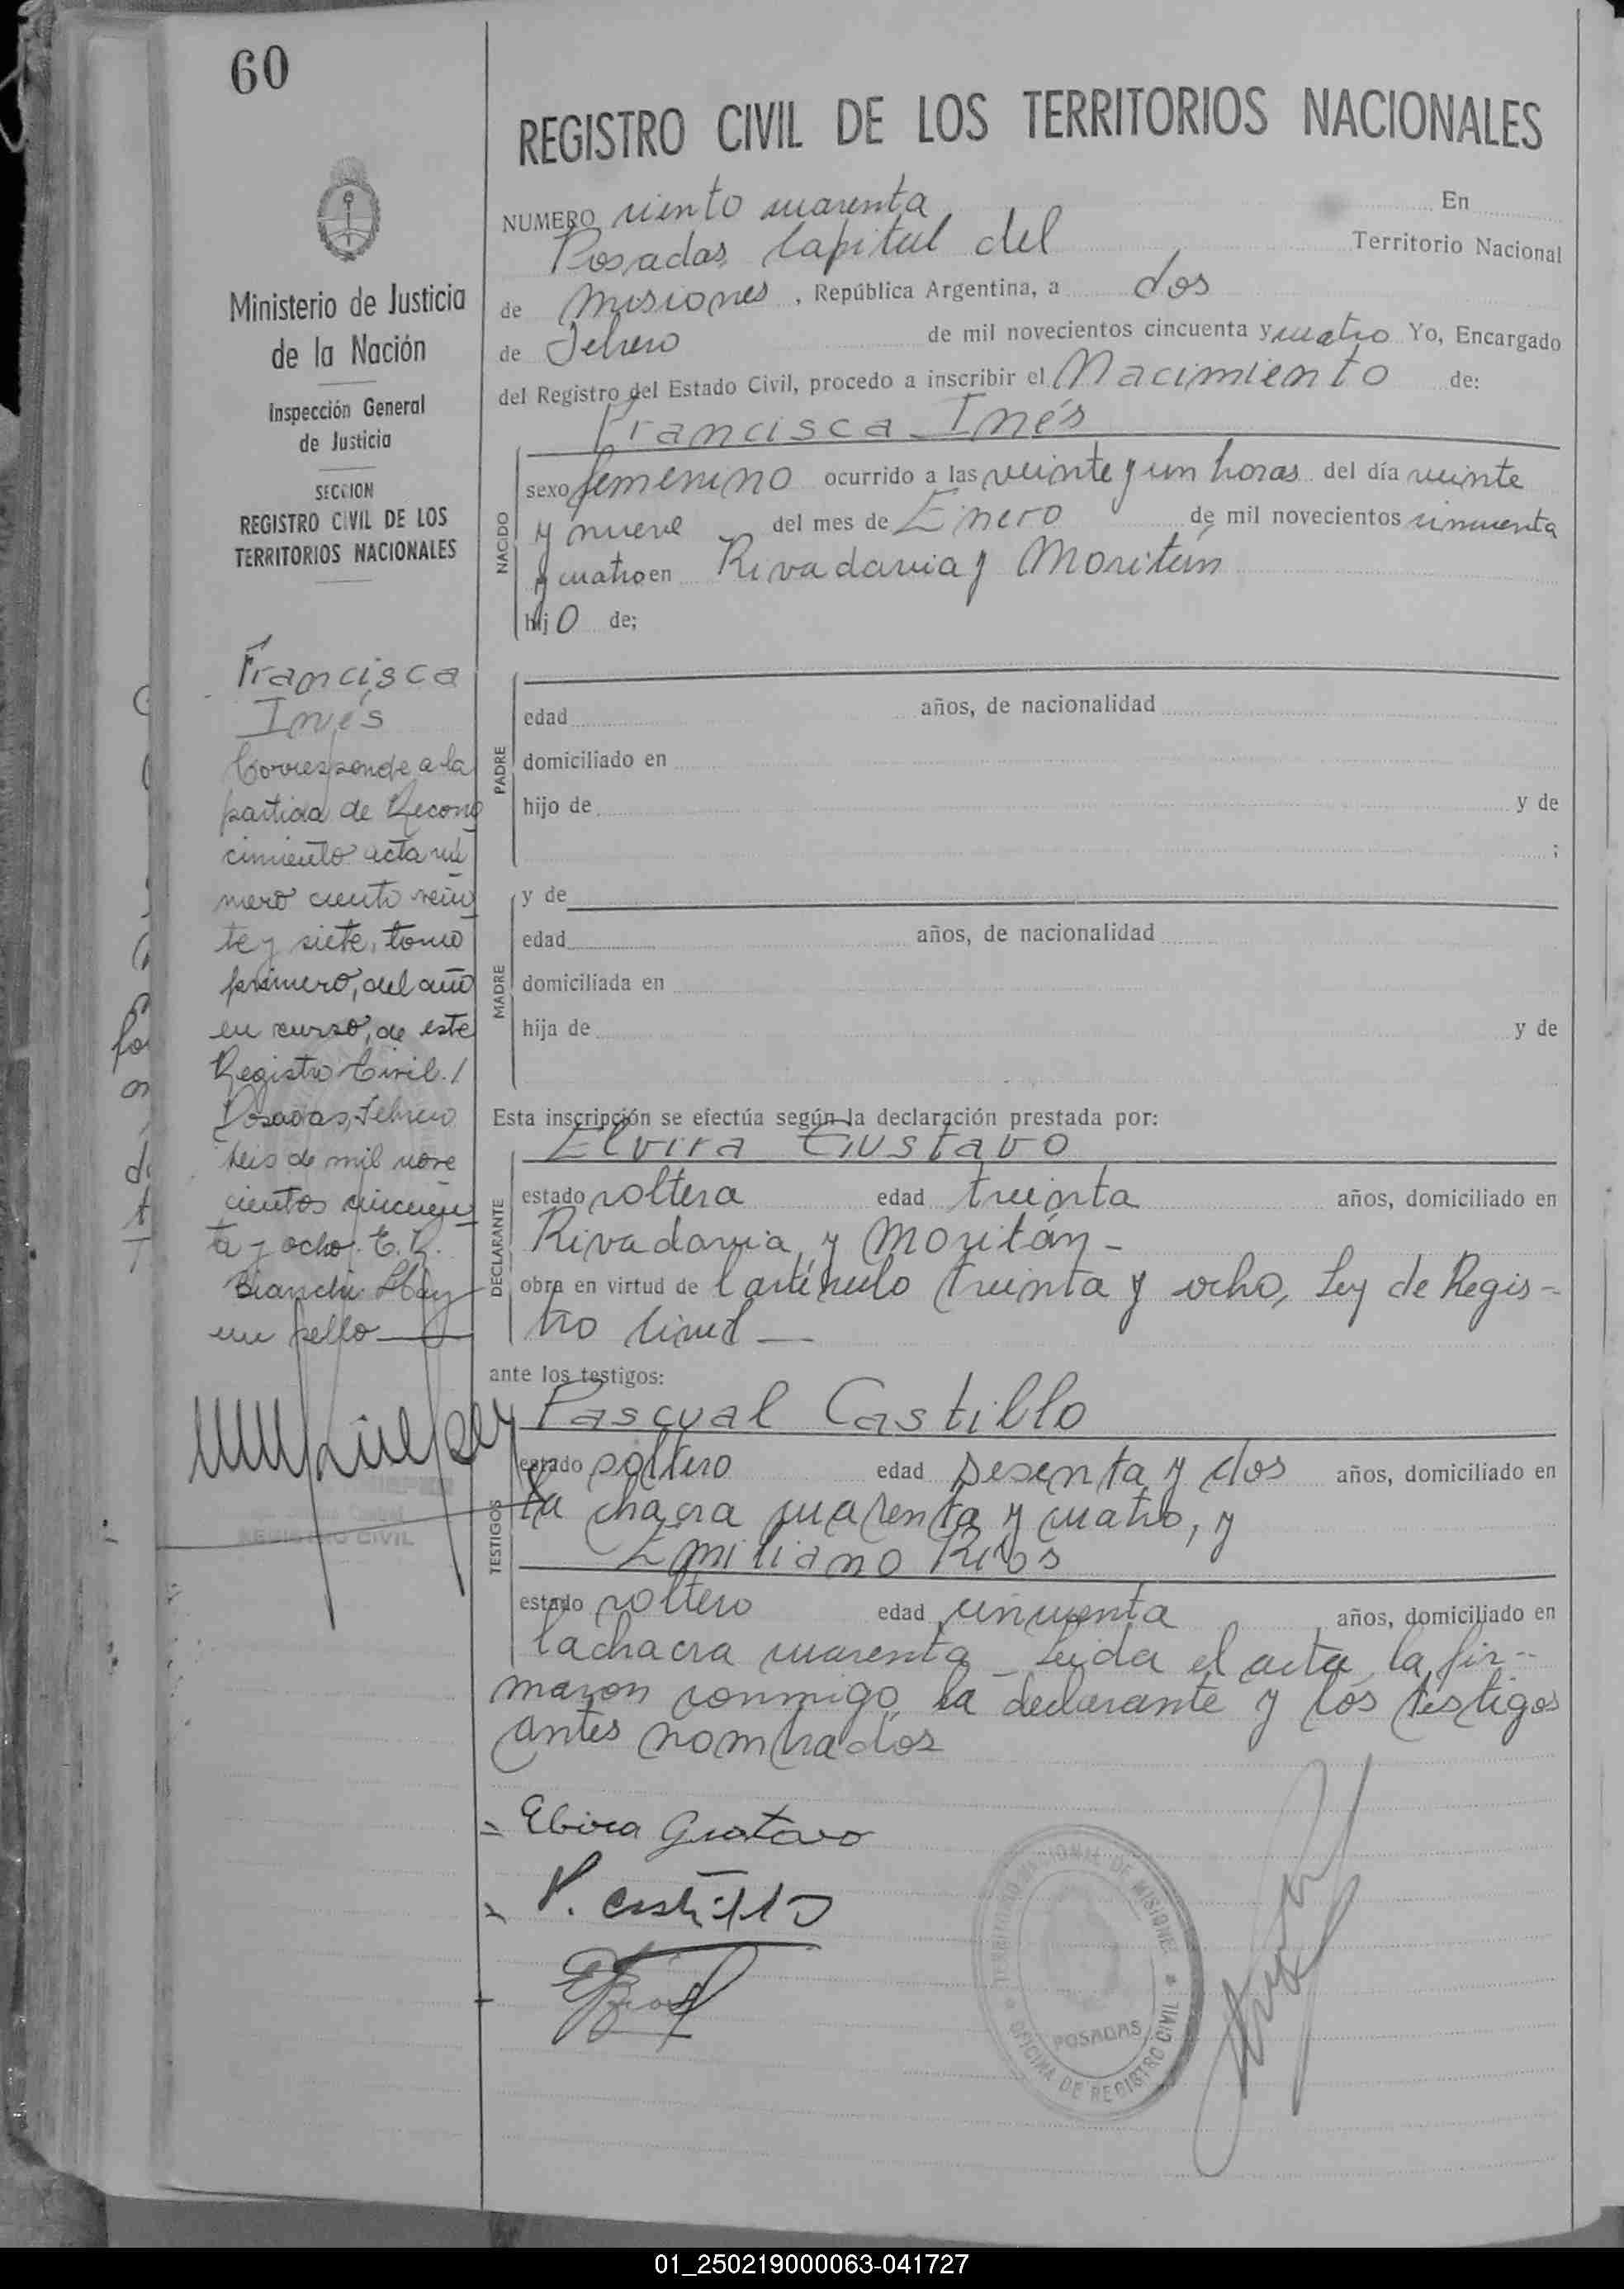 60
REGISTRO CIVIL DE LOS TERRITORIOS NACIONALES
NUMERO ciento cuarenta En
Posadas, Capital del Territorio Nacional
de Misiones, República Argentina, a dos
de Febrero de mil novecientos cincuenta y cuatro Yo, Encargado
del Registro del Estado Civil, procedo a inscribir el Nacimiento de:
Francisca Inés
NACIDO
sexo femenino ocurrido a las veinte y un horas del día veinte
y nueve del mes de Enero de mil novecientos cincuenta
y cuatro en Rivadavia y Moritán
hijo de;
PADRE
edad años, de nacionalidad
domiciliado en
hijo de y de
;
MADRE
y de
edad años, de nacionalidad
domiciliada en
hija de y de
Esta inscripción se efectúa según la declaración prestada por:
Elvira Gustavo
DECLARANTE
estado soltera edad treinta años, domiciliado en
Rivadavia y Moritán -
obra en virtud de l artículo treinta y ocho, Ley de Regis-
tro Civil —
ante los testigos:
Pascual Castillo
TESTIGOS
estado soltero edad sesenta y dos años, domiciliado en
la chacra cuarenta y cuatro, y
Emiliano Rios
estado soltero edad cincuenta años, domiciliado en
la chacra cuarenta - Leída el acta la fir-
maron conmigo, la declarante y los testigos
antes nombrados
Elvira Gustavo
P. Castillo
TERRITORIO NACIONAL DE MISIONES
POSADAS
OFICINA DE REGISTRO CIVIL
Ministerio de Justicia
de la Nación
Inspección General
de Justicia
SECCION
REGISTRO CIVIL DE LOS
TERRITORIOS NACIONALES
Francisca
Inés
Corresponde a la
partida de Recono
cimiento acta nú
mero ciento vein
te y siete, tomo
primero, del año
en curso, de este
Registro Civil. /
Posadas, Febrero
seis de mil nove
cientos cincuen
ta y ocho. E. R.
Bianchi. Hay
un sello —
REGISTRO CIVIL
01_250219000063-041727